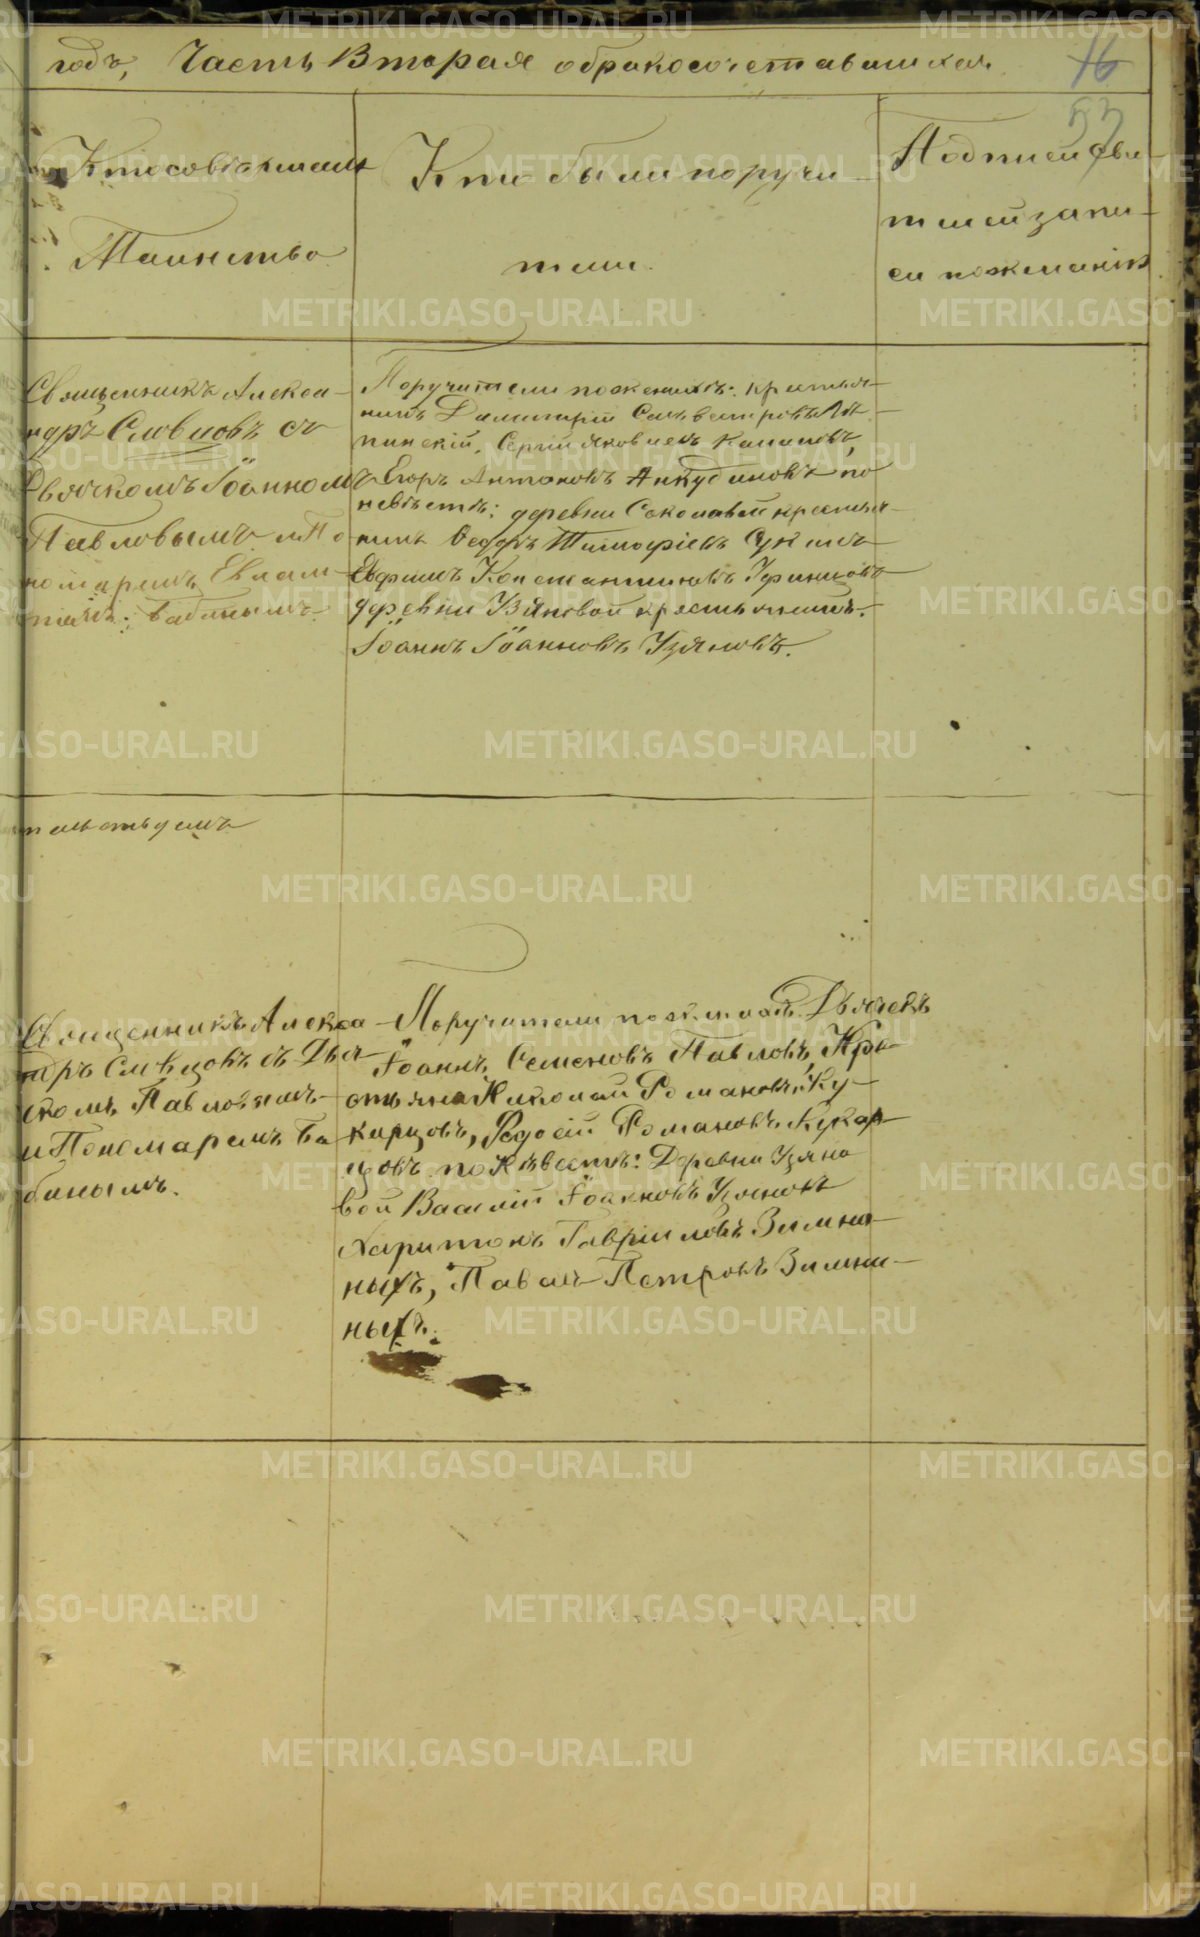 годъ, Часть Вторая обракосочетавшихся.
16
53
Кто совершалъ
Таинство
Кто были поручи
тели.
Подписи сви-
телей запи-
си по желанію
Священникъ Алекса-
ндръ Словцовъ съ
Дьячкомъ Іоанномъ
Павловымъ и По-
номаремъ Евлам-
піемъ Бабинымъ.
Поручители по женихѣ: крестья-
нинъ Димитрій Сильвестровъ Ля-
пинскій, Сергій Яковлевъ
Егоръ Антоновъ Анкудиновъ по
невѣстѣ: деревни Соколовой крестья-
нинъ Ѳедоръ Тимофіевъ
Евфимъ Константиновъ
деревни Узяновой крестьянинъ.
Іоаннъ Іоанновъ Узяновъ.
Священникъ Алекса
ндръ Словцовъ съ Дья
чкомъ Павловымъ
и Пономаремъ Ба
бинымъ.
Поручители по женихѣ Дьячекъ
Іоаннъ Семеновъ Павловъ, Кре-
стьяне Николай Романовъ Ку-
карцовъ, Ѳедосій Романовъ Кукар
цовъ по невѣстѣ: Деревни Узяно
вой Василій Іоанновъ Узяновъ
Харитонъ Гавріиловъ Зимня-
ныхъ, Павелъ Петровъ Зимни-
ныхъ.
METRIKI.GASO-URAL.RU